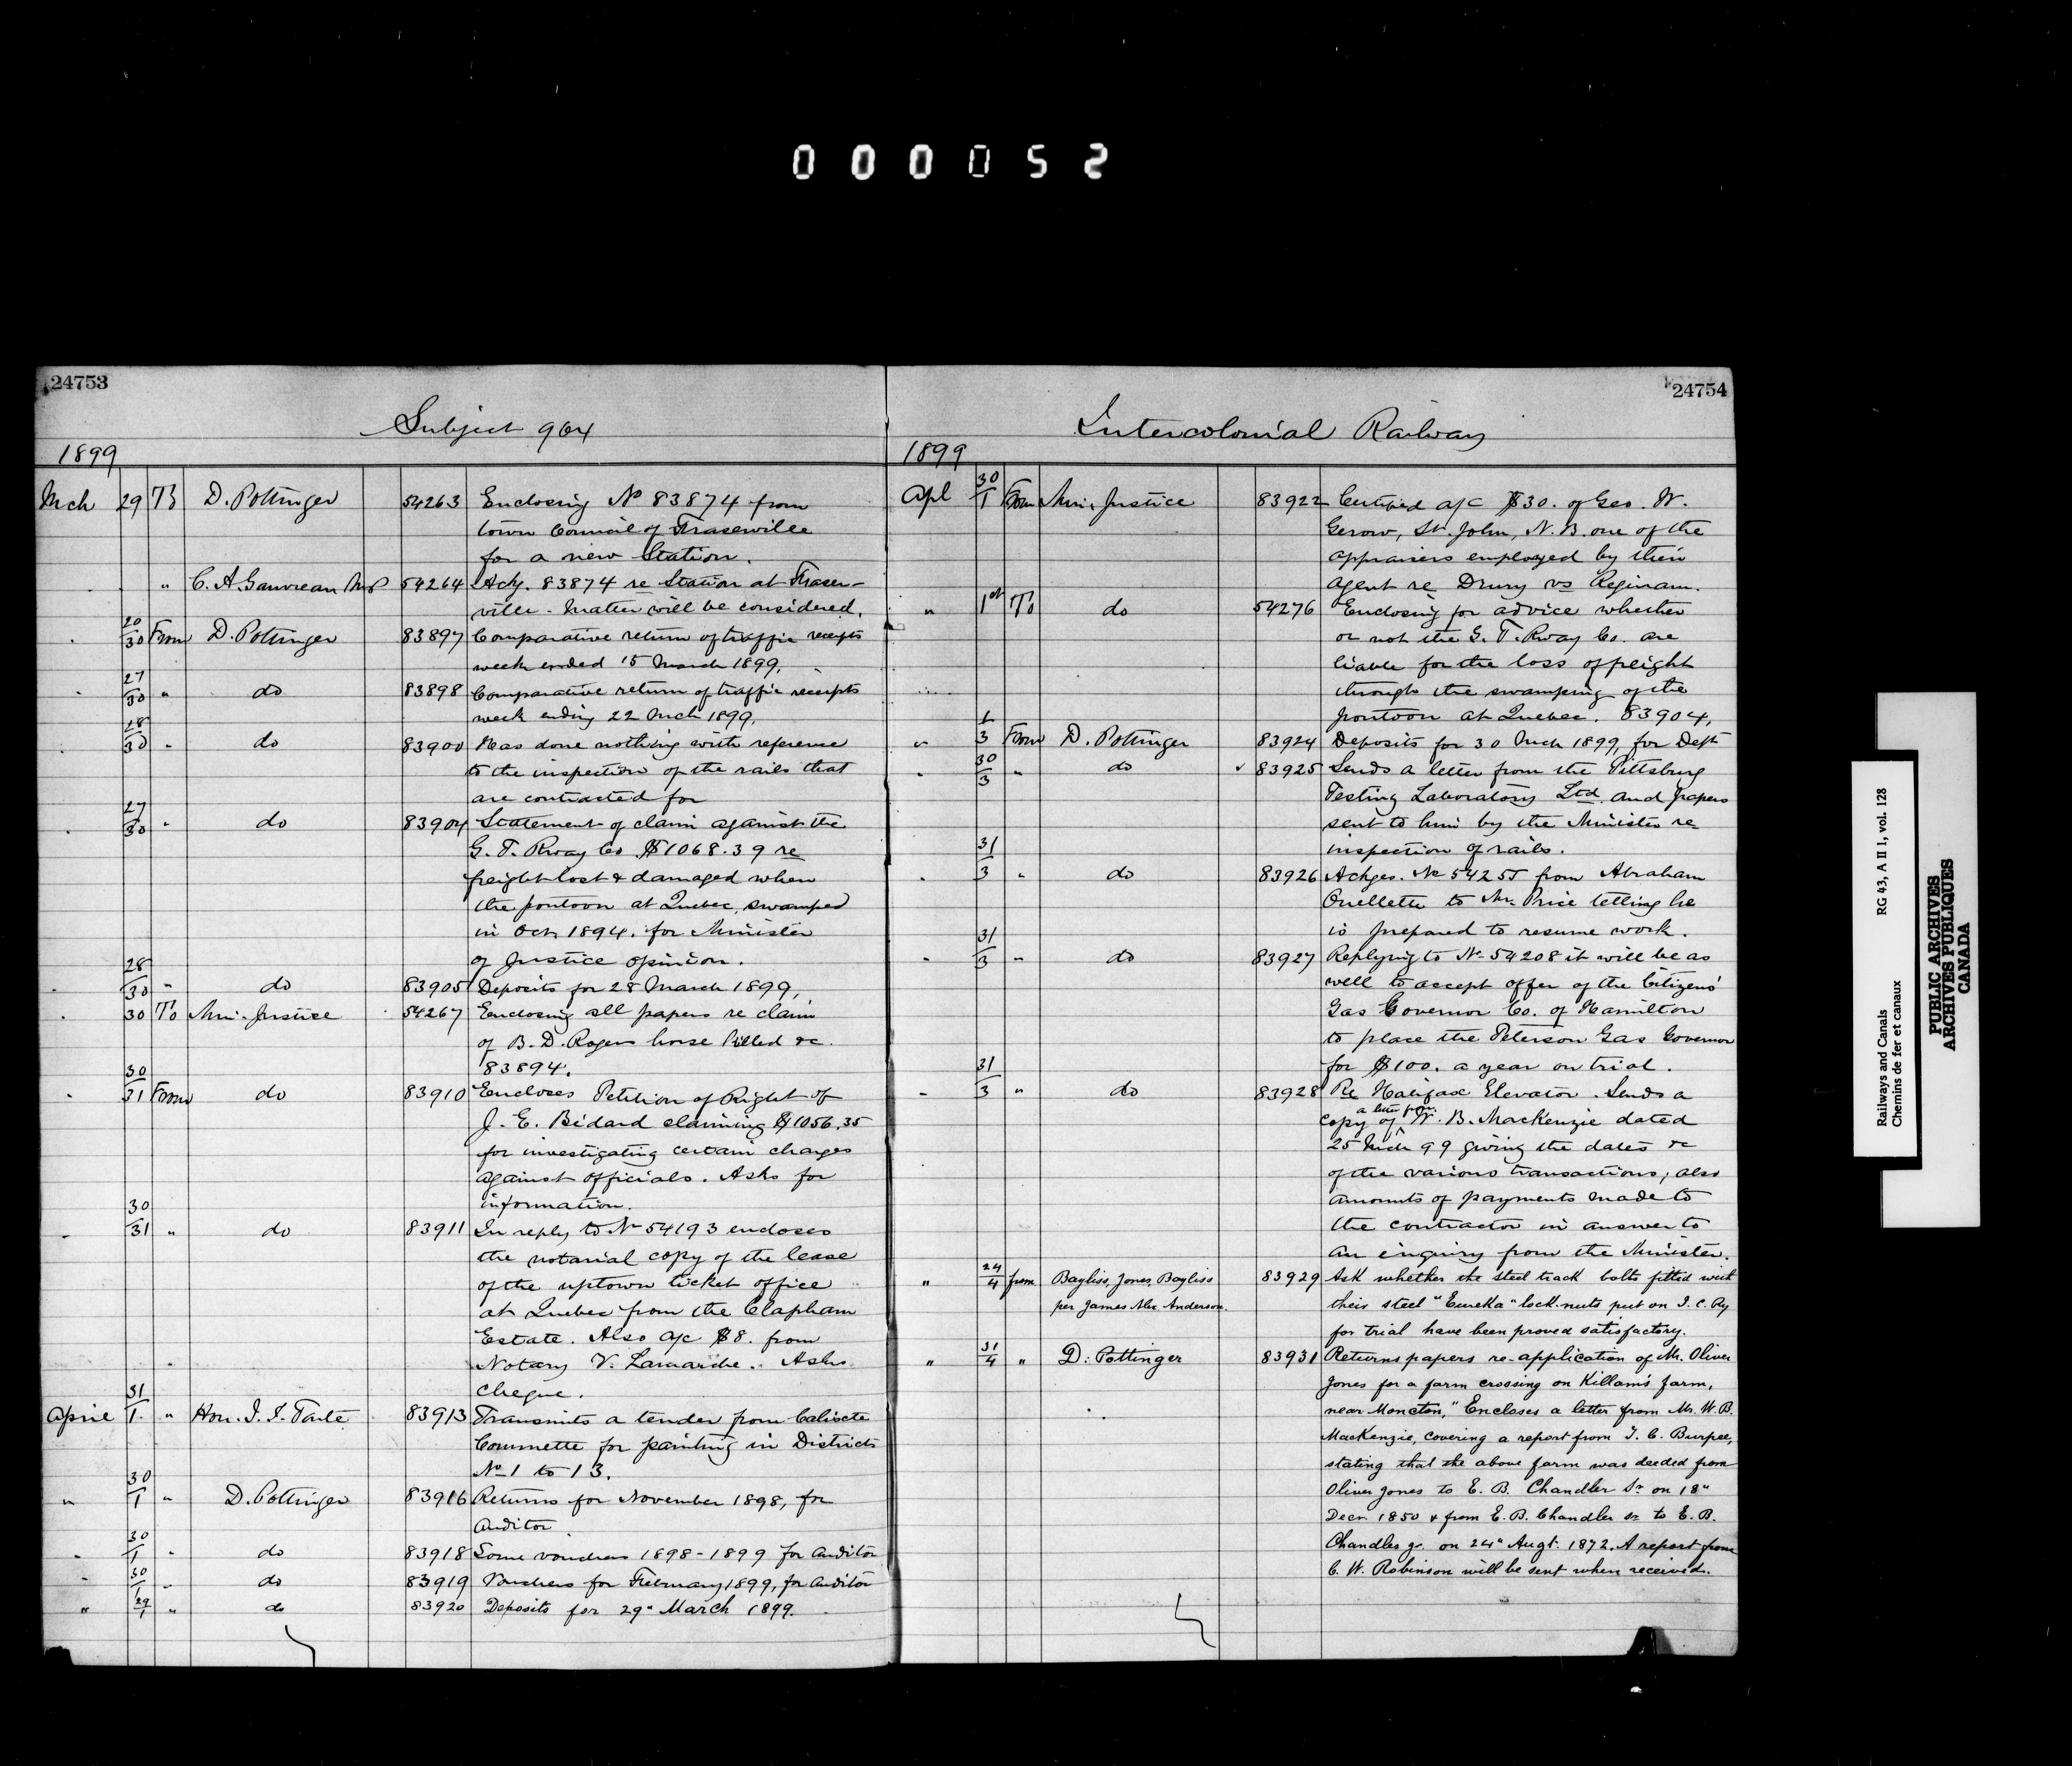 000052
24753
Subject 964
1899
Mch 29 To D. Pottinger 54263 Enclosing No 83874 from
town Council of Fraserville
for a new Station.
" C. A. Gauvreau M.P. 54264 Ackg. 83874 re Station at Fraser-
ville - matter will be considered.
20/30 From D. Pottinger 83897 Comparative return of traffic receipts
week ended 15 March 1899.
27/30 " do 83898 Comparative return of traffic receipts
week ending 22 Mch 1899.
28/30 " do 83900 Has done nothing with reference
to the inspection of the rails that
are contracted for
27/30 " do 83904 Statement of claim against the
G. T. Rway Co $1068.39 re
freight lost & damaged when
the pontoon at Quebec, swamped
in Oct 1894. for Minister
of Justice opinion.
28/30 " do 83905 Deposits for 28 March 1899,
30 To Min. Justice 54267 Enclosing all papers re claim
of B. D. Rogers horse killed &c.
83894.
30/31 From do 83910 Encloses Petition of Right of
J. E. Bidard claiming $1056.35
for investigating certain charges
against officials. Asks for
information.
30/31 " do 83911 In reply to No 54193 encloses
the notarial copy of the lease
of the uptown ticket office
at Quebec from the Clapham
Estate. Also a/c $8. from
Notary V. Lamarche. Asks
cheque.
April 31/1 " Hon. J. I. Tarte 83913 Transmits a tender from Calixte
for painting in Districts
No 1 to 13.
" 30/1 " D. Pottinger 83916 Returns for November 1898, for
Auditor
" 30/1 " do 83918 Some vouchers 1898-1899 for Auditor
" 30/1 " do 83919 Vouchers for February 1899, for Auditor
" 29/1 " do 83920 Deposits for 29" March 1899.
24754
Intercolonial Railway
1899
Apl 30/1 From Min. Justice 83922 Certified a/c $30. of Geo. W.
Gerow, St. John, N. B. one of the
appraisers employed by their
Agent re Drury vs Reginam.
" 1st To do 54276 Enclosing for advice whether
or not the G. T. Rway Co. are
liable for the loss of freight
through the swamping of the
pontoon at Quebec. 83904,
" 1/3 From D. Pottinger 83924 Deposits for 30 Mch 1899, for Dept
" 30/3 " do 83925 Sends a letter from the Pittsburg
Testing Laboratory Ltd. and papers
sent to him by the Minister re
inspection of rails.
" 31/3 " do 83926 Ackges. No 54255 from Abraham
Ouellette to Mr. Price telling he
is prepared to resume work.
" 31/3 " do 83927 Replying to No 54208 it will be as
well to accept offer of the Citizens'
Gas Governor Co. of Hamilton
to place the Peterson Gas Governor
for $100. a year on trial.
" 31/3 " do 83928 Re Halifax Elevator. Sends a
copy of a letter from W. B. MacKenzie dated
25 Mch 99 giving the dates &c
of the various transactions; also
amounts of payments made to
the contractor in answer to
an enquiry from the Minister.
" 24/4 from Bayliss, Jones, Bayliss 83929 Ask whether the steel track bolts fitted with
per James Alex. Anderson. their steel "Eureka" lock-nuts put on I. C. Ry
for trial have been proved satisfactory.
" 31/4 " D. Pottinger 83931 Returns papers re application of Mr. Oliver
Jones for a farm crossing on Killam's farm,
near Moncton," Encloses a letter from Mr. W. B.
MacKenzie, covering a report from T. C. Burpee,
stating that the above farm was deeded from
Oliver Jones to E. B. Chandler Sr on 18"
Decr 1850 & from E. B. Chandler Sr to E. B.
Chandler Jr. on 24" Augt. 1872. A report from
C. W. Robinson will be sent when received.
Railways and Canals RG 43, A II 1, vol. 128
Chemins de fer et canaux
PUBLIC ARCHIVES
ARCHIVES PUBLIQUES
CANADA